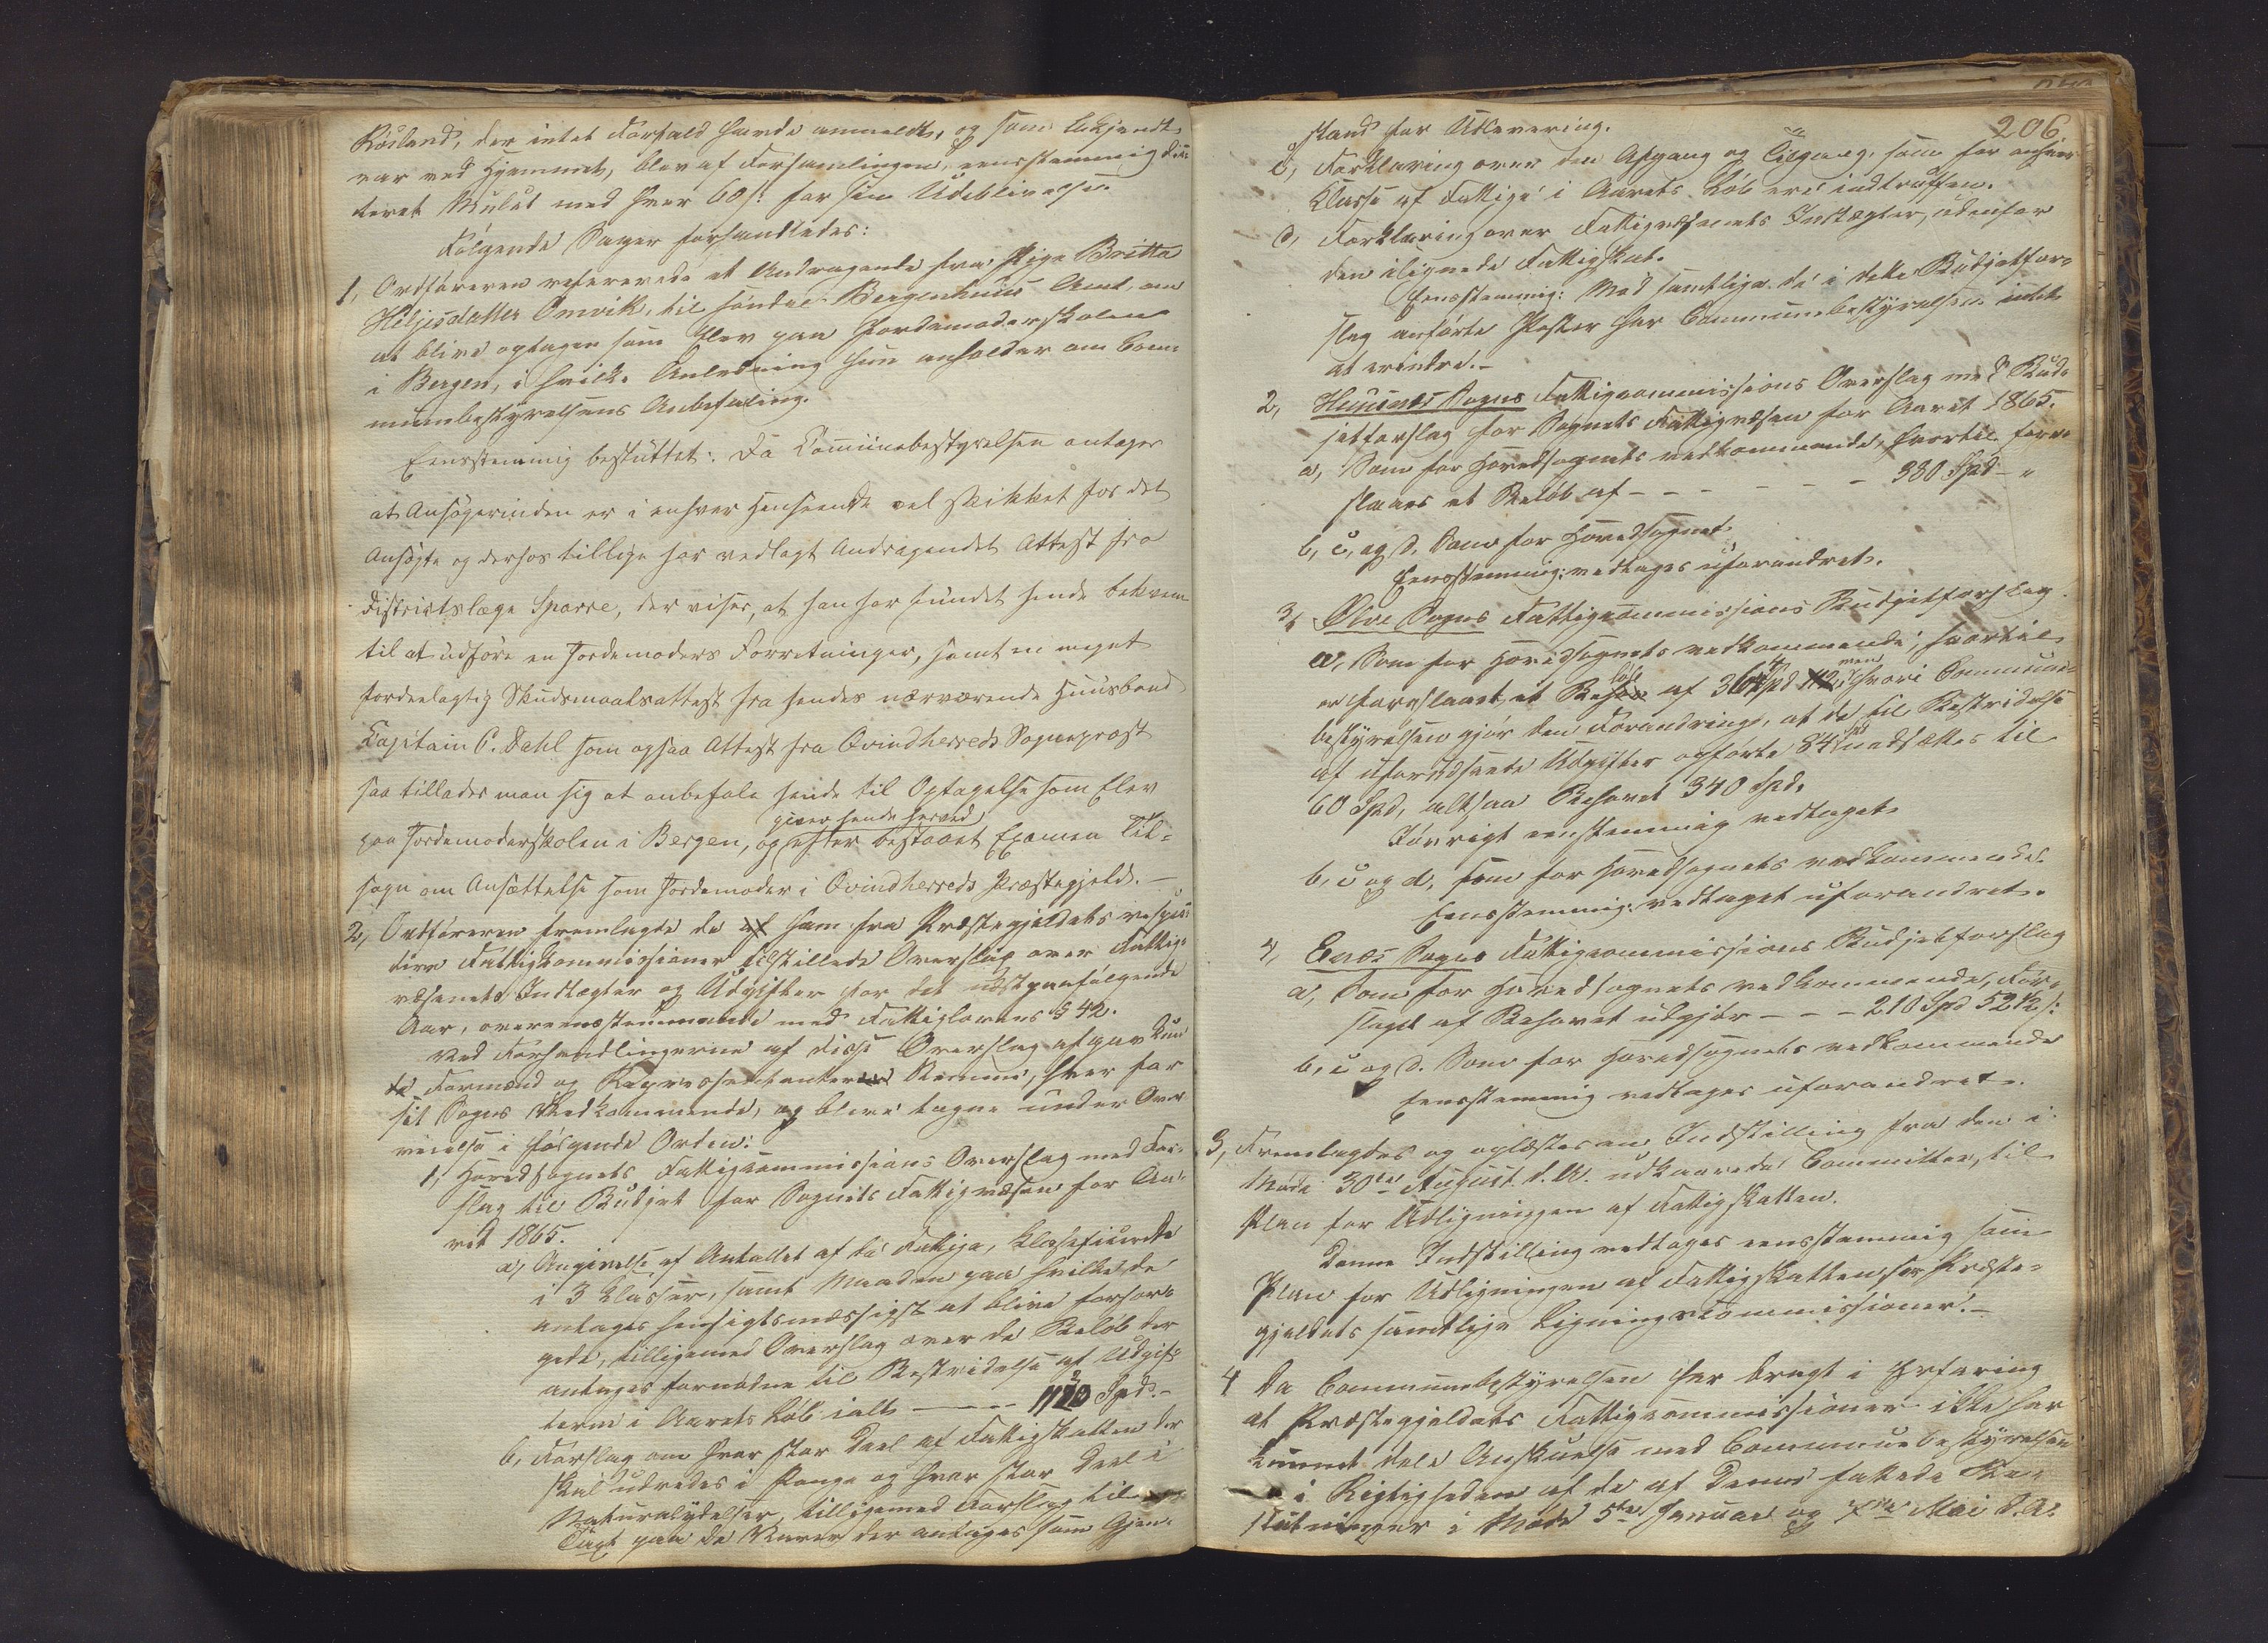 Røsland, der intet Forfald havde anmeldt, og som bekjendt
var ved Hjemmet, blev af Forsamlingen eensstemmig dic-
teret Mulct med hver 60 s: for sin Udeblivelse.
Følgende Sager forhandledes:
1, Ordføreren refererede et Andragende fra Pige Britta
Heljesdatter Omvik, til søndre Bergenhuus Amt om
at blive optagen som Elev paa Jordemoderskolen
i Bergen, i hvilken Anledning hun anholder om Com-
munebestyrelsens Anbefaling.
Eensstemmig besluttet: Da Communebestyrelsen antager
at Ansøgerinden er i enhver Henseende vel skikket for det
Ansøgte og derhos tillige har vedlagt Andragendet Attest fra
Districtslæge Sparre, der viser, at han har fundet hende bekvem
til at udføre en Jordemoders Forretninger, samt en meget
fordeelagtig Skudsmaalsattest fra hendes nærværende Huusbond
Capitain C. Dahl som ogsaa Attest fra Qvindherreds Sogneprest
saa tillader man sig at anbefale hende til Optagelse som Elev
giver hende herved
paa Jordemoderskolen i Bergen, og efter bestaaet Examen Til-
sagn om Ansættelse som Jordemoder i Qvindherreds Præstegjeld. —
2, Ordføreren fremlagde de af ham fra Præstegjeldets respec-
tive Fattigkommissioner tilstillede Overslag over Fattig-
væsenets Indtægter og Udgifter for det næstpaafølgende
Aar, overeensstemmende med Fattiglovens § 42.
Ved Forhandlingerne af disse Overslag afgav kun
de Formænd og Repræsentanter Stemme, hver for
sit Sogns Vedkommende, og bleve tagne under Over
veielse i følgende Orden:
1, Hovedsognets Fattigcommissions Overslag med For-
slag til Budget for Sognets Fattigvæsen for Aa-
ret 1865.
a, Angivelse af Antallet af de Fattige, klassificerede
i 3 Klasser, samt Maaden paa hvilken de
antages hensigtsmæssigst at blive forsør-
gede, tilligemed Overslag over de Beløb der
antages fornødne til Bestridelse af Udgif-
terne i Aarets Løb ialt — — — 1120 Spd.-
b, Forslag om hvor stor Deel af Fattigskatten der
skal udredes i Penge og hvor stor Deel i
Naturalydelser, tilligemed Forslag til
Taxt paa de Varer der antages som Gjen-
206.
stand for Udlevering.
c, Forklaring over den Afgang og Tilgang, som for enhver
Klasse af Fattige i Aarets Løb ere indtruffen.
d, Forklaring over Fattigvæsenets Indtægter, udenfor
den ilignede Fattigskat.
Eensstemmig: Mod samtlige de i dette Budjetfor-
slag anførte Poster har Communebestyrelsen intet
at erindre. -
2, Huusnæs Sogns Fattigcommissions Overslag med Bud-
jetforslag for Sognets Fattigvæsen for Aaret 1865.
a, Som for Hovedsognets vedkommende, hvortil fore-
slaaes et Beløb af - - - - - - - 380 Spd - "
b, c, og d. Som for Hovedsognet.
Eensstemmig: vedtages uforandret.
3, Ølve Sogns Fattigcommissions Budjetforslag.
a, Som for Hovedsognets vedkommende, hvortil
er foreslaaet et Beløb af 364 Spd men hvori Commune-
bestyrelsen gjør den Forandring, at de til Bestridelse
af uforudseete Udgifter opførte 84 Spd nedsættes til
60 Spd, altsaa Behovet 340 Spd.
Iøvrigt eenstemmig vedtaget.
b, c og d, som for Hovedsognets vedkommende.
Eensstemmig: vedtaget uforandret.
4, Enæs Sogns Fattigcommissions Budjetforslag
a, Som for Hovedsognets vedkommende, For-
slaget af Behovet udgjør - - - 210 Spd 52½ s:
b, c og d. Som for Hovedsognets vedkommende
Eensstemmig vedtages uforandret.
3, Fremlagdes og oplæstes en Indstilling fra den i
Møde 30te August d. A. udkaarede Committee, til
Plan for Udligningen af Fattigskatten.
Denne Indstilling vedtages eensstemmig som
Plan for Udligningen af Fattigskatten for Præste-
gjeldets samtlige Ligningscommissioner. -
4 Da Communebestyrelsen har bragt i Erfaring
at Præstegjeldets Fattigcommissioner ikke har
kunnet dele Anskuelse med Communebestyrelsen
i Rigtigheden af de af denne fattede Be-
slutninger i Møde 5te Januar og 7de Mai d. A.